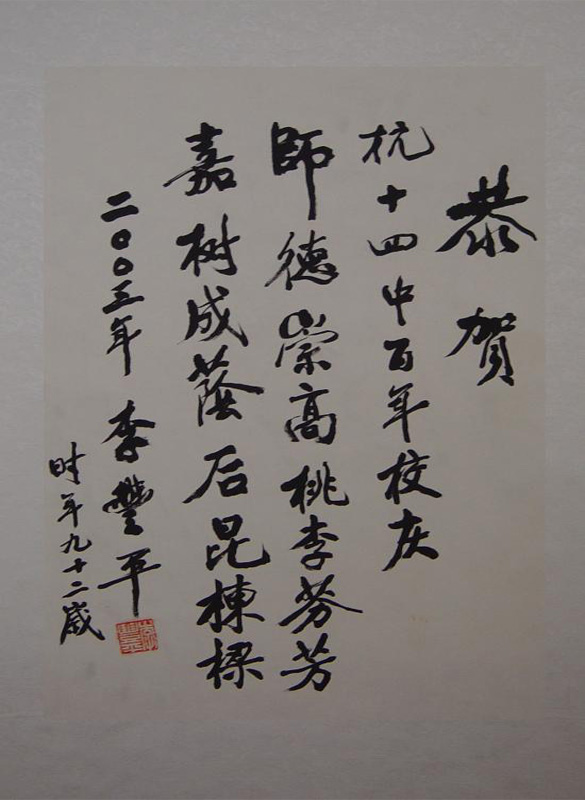 恭賀
杭十四中百年校庆
師德崇高桃李芬芳
嘉树成蔭后昆棟樑
二〇〇三年 李豐平
时年九十二歲